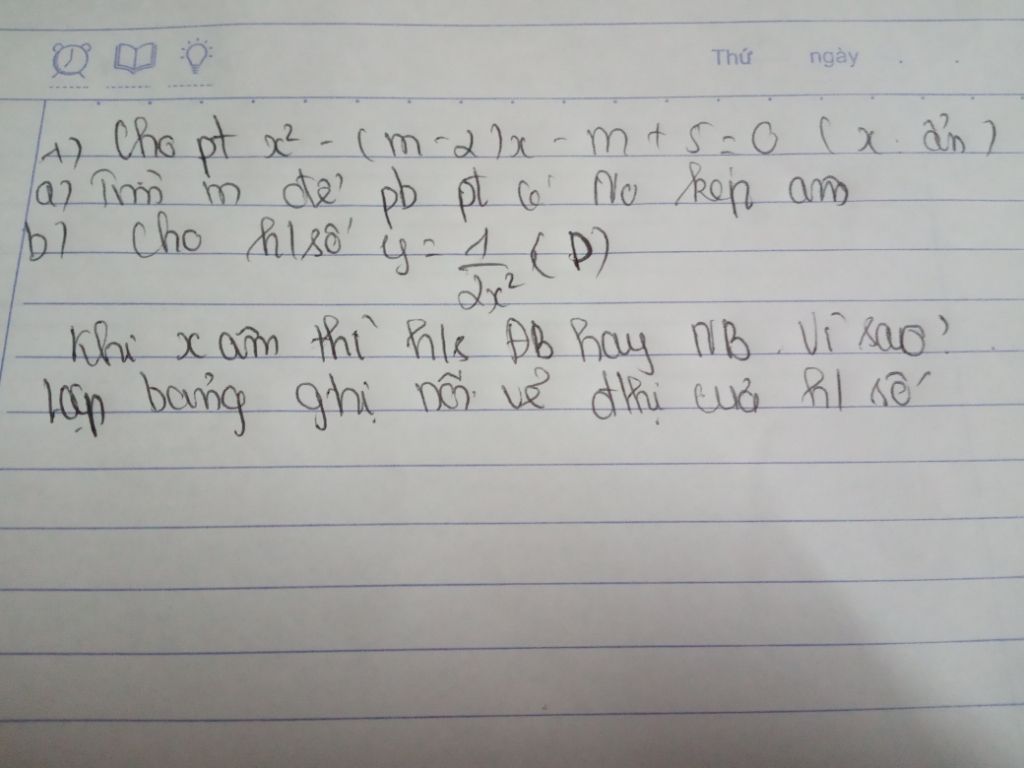 Thứ ngày
1) Cho pt x² - (m-2)x - m + 5 = 0 ( x. ẩn )
a) Tìm m để pb pt có No kép âm
b) Cho h/số y = 1/2x² (P)
Khi x âm thì h/s ĐB hay NB. Vì sao?
lập bảng ghị rồi vẽ đthị của h/ số